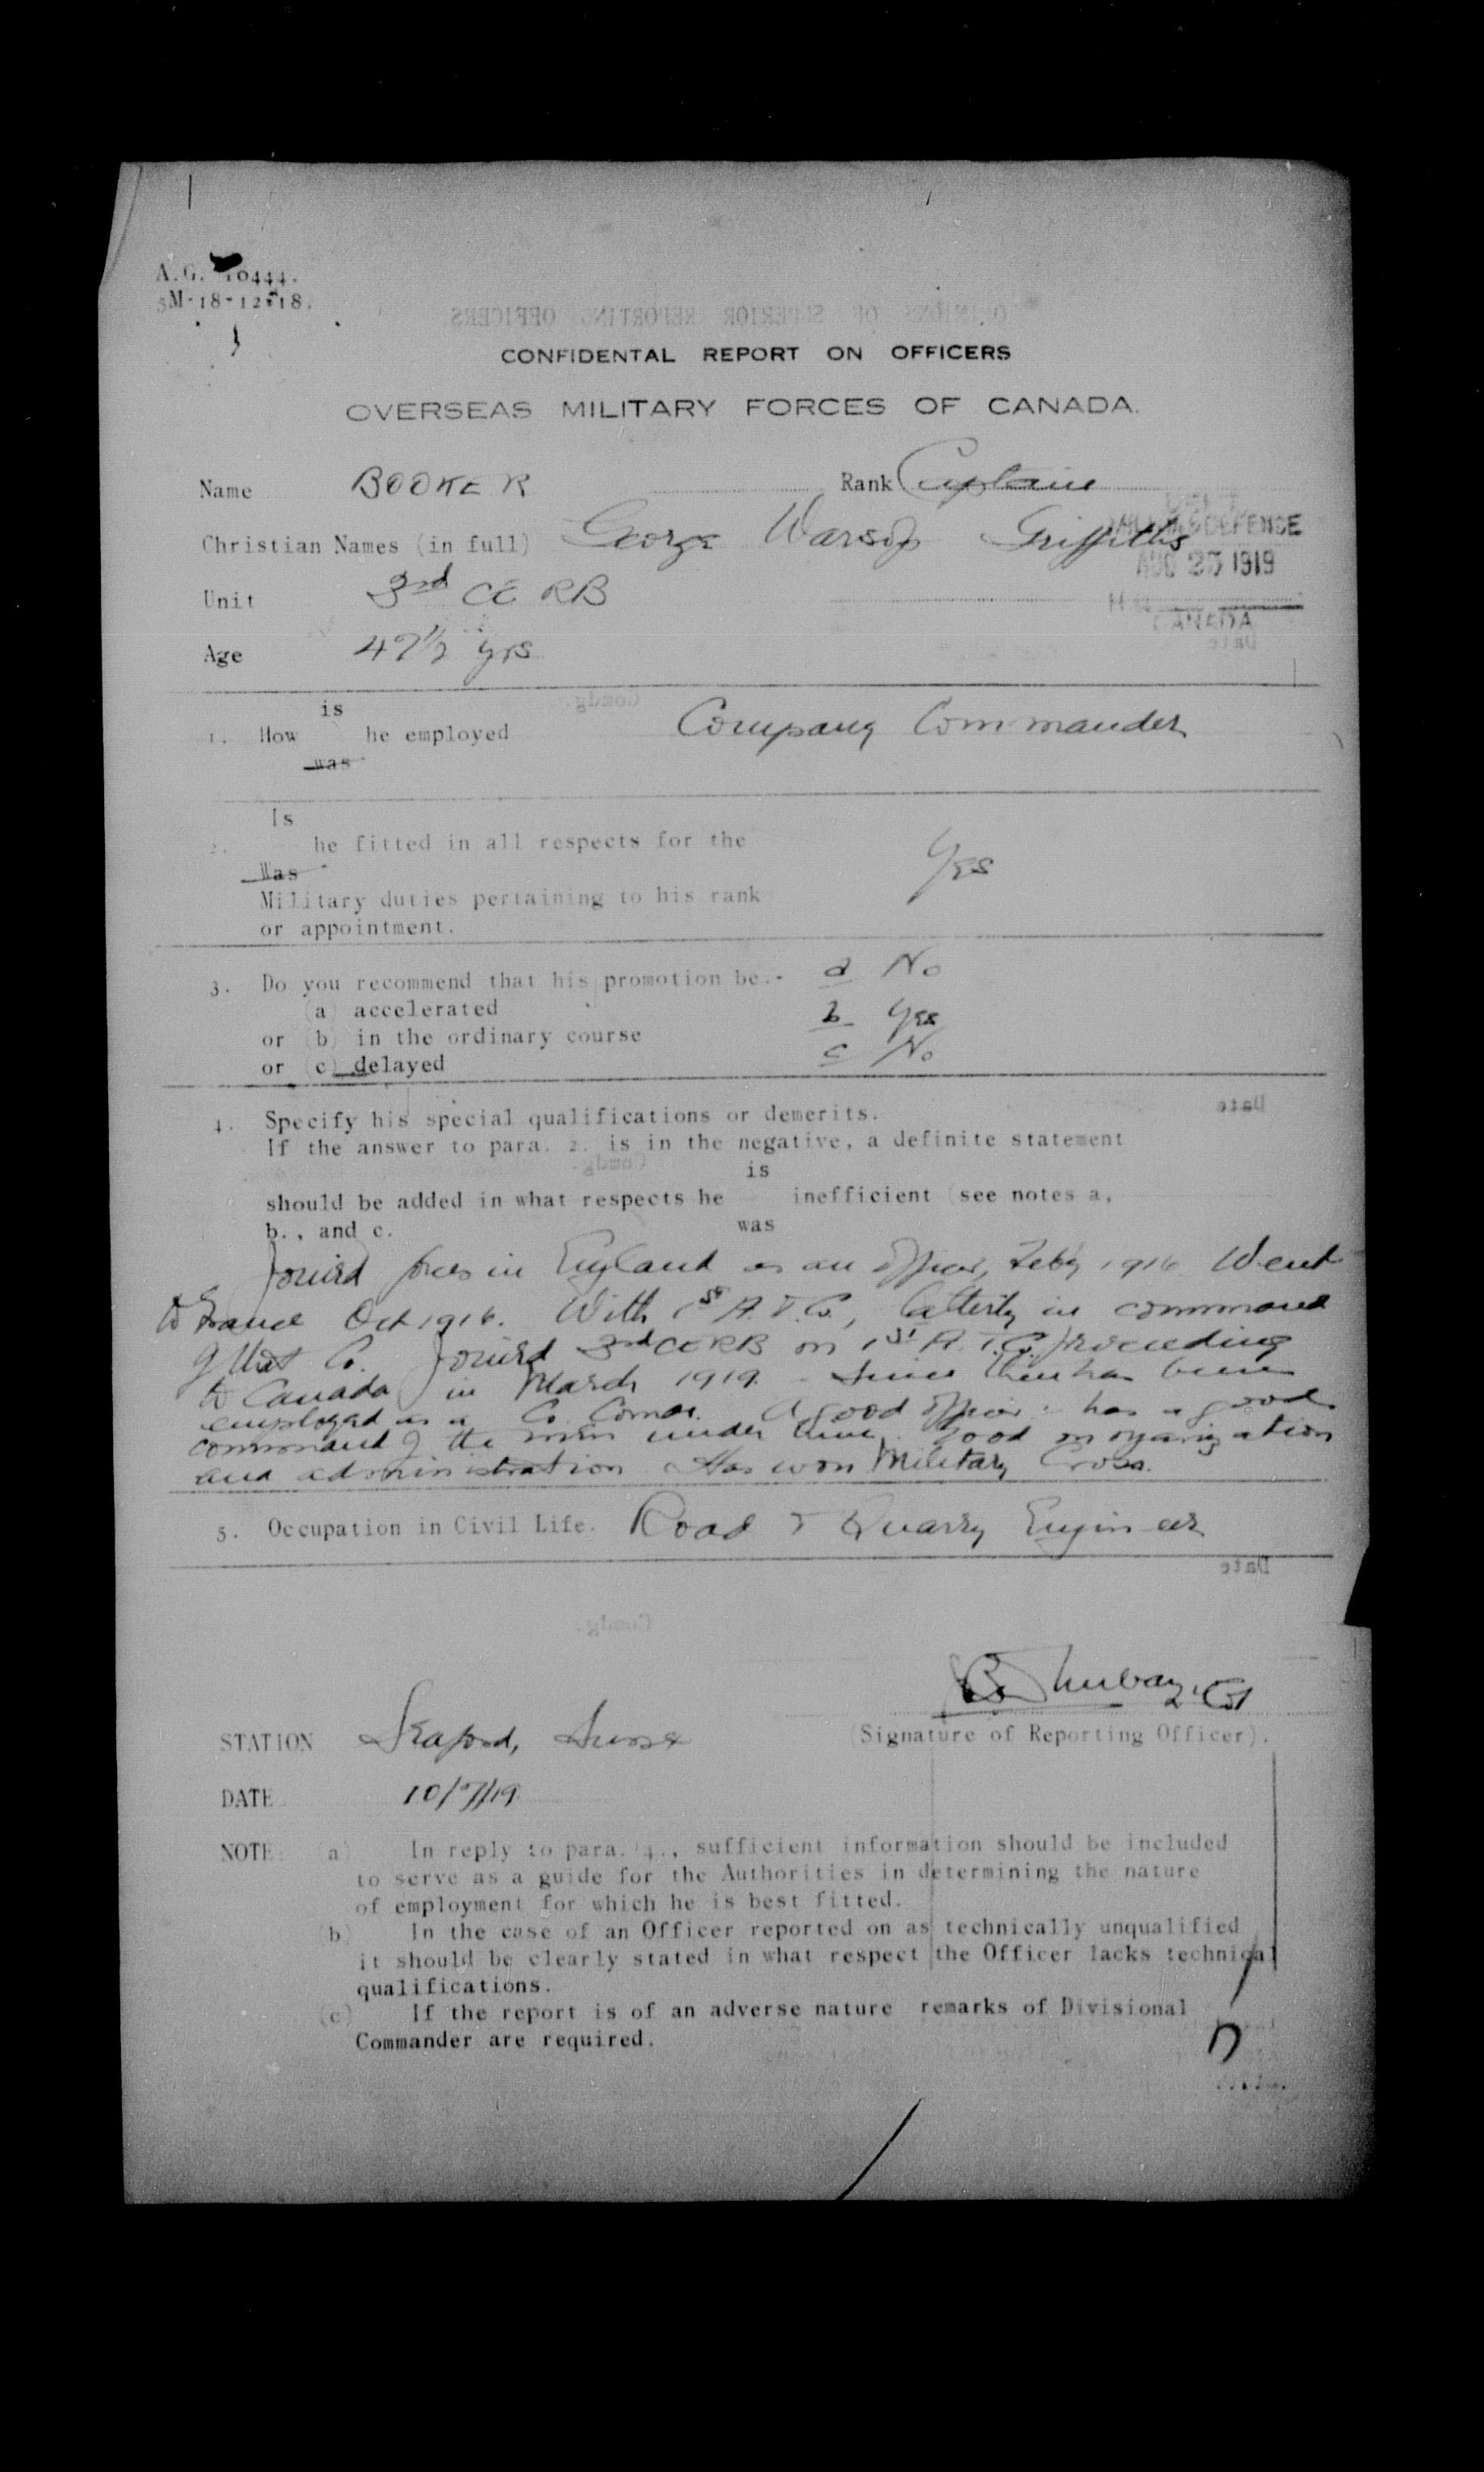 A.G. 10444.
5M-18-12-18.
CONFIDENTAL REPORT ON OFFICERS
OVERSEAS MILITARY FORCES OF CANADA.
Name BOOKER Rank Captain
Christian Names (in full) George Warsop Griffiths
DEFENCE
AUG 25 1919
CANADA
Unit 3rd CE RB
Age 47½ yrs
is
1. How he employed Company Commander
was
Is
2. he fitted in all respects for the
Was
Yes
Military duties pertaining to his rank
or appointment.
3. Do you recommend that his promotion be.- a No
(a) accelerated
b Yes
or (b) in the ordinary course
or (c) delayed c No
4. Specify his special qualifications or demerits.
If the answer to para. 2. is in the negative, a definite statement
is
should be added in what respects he inefficient (see notes a,
b., and c. was
Joined forces in England as an Officer, Feby 1916. Went
to France Oct 1916. With 1st A.T.Co., latterly in command
of that Co. Joined 3rd CERB on 1st A.T.Co. proceeding
to Canada in March 1919. Since then has been
employed as a Co. Comdr. A good Officer - has a good
command of the men under him. Good on organization
and administration. Has won Military Cross.
5. Occupation in Civil Life. Road & Quarry Engineer
(Signature of Reporting Officer).
STATION Seaford, Sussex
DATE 10/7/19
NOTE: (a) In reply to para. 4., sufficient information should be included
to serve as a guide for the Authorities in determining the nature
of employment for which he is best fitted.
(b) In the case of an Officer reported on as technically unqualified
it should be clearly stated in what respect the Officer lacks technical
qualifications.
(c) If the report is of an adverse nature remarks of Divisional
Commander are required.